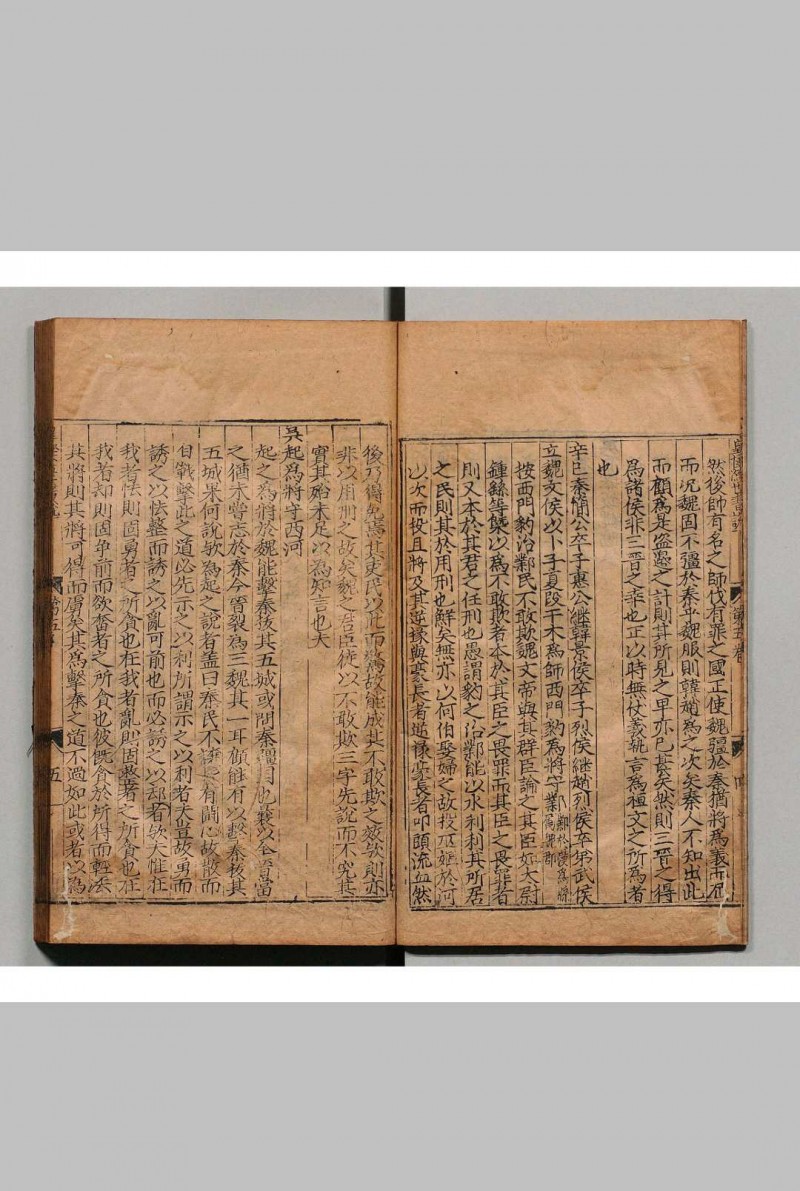 然後帥有名之師伐有罪之國正使魏疆於秦猶將為義而屈
而况魏固不彊於秦乎魏服則韓趙為之次矣秦人不知出此
而顧為是盗之計則其所見之卑亦已甚矣然則三晋之得
為諸侯非三晋之幸也正以時無仗義執言為桓文之所為者
也
辛巳秦簡公卒子惠公繼韓景侯卒子烈侯繼趙烈侯卒弟武侯
立魏文侯以卜子夏段干木為師西門豹為將守鄴
按西門豹治鄴民不敢欺魏文帝與其群臣論之其臣如大尉
鍾繇等僉以為不敢欺者本於其臣之畏罪而其臣之畏罪者
則又本於其君之任刑也愚謂豹之治鄴能以水利利其所居
之民則其於用刑也鮮矣無亦以何伯娶婦之故投巫嫗於河
以次而投且將及其廷掾與豪長者廷掾豪長者叩頭流血然
後乃得免焉其吏民以此而驚故能成其不敢欺之效欤則亦
非以用刑之故矣魏之君臣徒以不敢欺三字先說而不究其
實其殆未足以為知言也夫
吳起為將守西河
起之為將於魏能擊秦拔其五城或問秦彊国也曩以全晋當
之猶不得志於秦今晋裂為三魏其一耳顧能有以擊秦拔其
五城果何說欤為起之說者盖曰秦民不讓有鬪心故散而
自戰擊此之道必先示之以利所謂示之以利者夫豈故勇而
誘之以怯整而誘之以亂可前也而必誘之以却者欤大惟在
我者怯則固勇者之所貪也在我者亂則固整者之所貪也在
我者却則固争前而欲奮者之所貪也彼既貪於所得而輕去
其將則其將可得而虜矣其為擊秦之道不過如此或者以為
第五卷
五